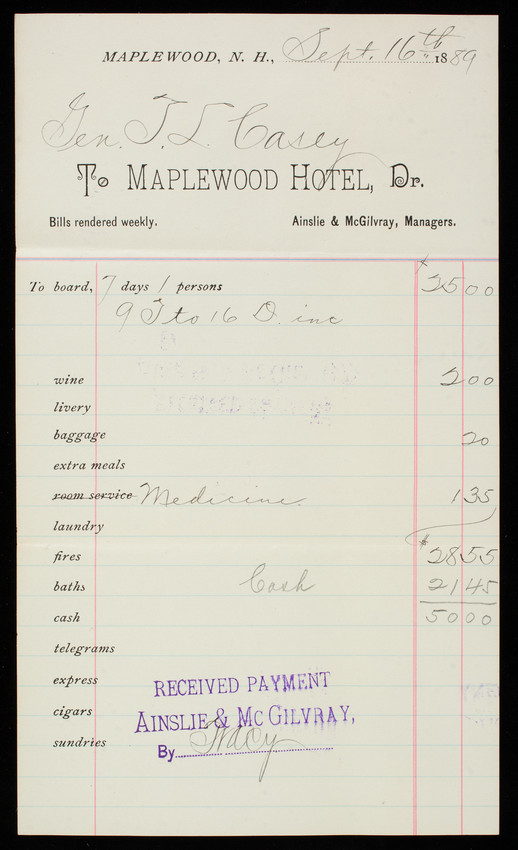 MAPLEWOOD, N. H., Sept. 16th 1889
Gen. T. L. Casey
To MAPLEWOOD HOTEL, Dr.
Bills rendered weekly. Ainslie & McGilvray, Managers.
To board, 7 days 1 persons $ 25 00
9 T to 16 D. inc
wine 2 00
livery
baggage 20
extra meals
room service Medicine. 1 35
laundry
fires $ 28 55
baths Cash 21 45
cash 50 00
telegrams
express
RECEIVED PAYMENT
cigars
AINSLIE & MC GILVRAY,
sundries
By Tracy